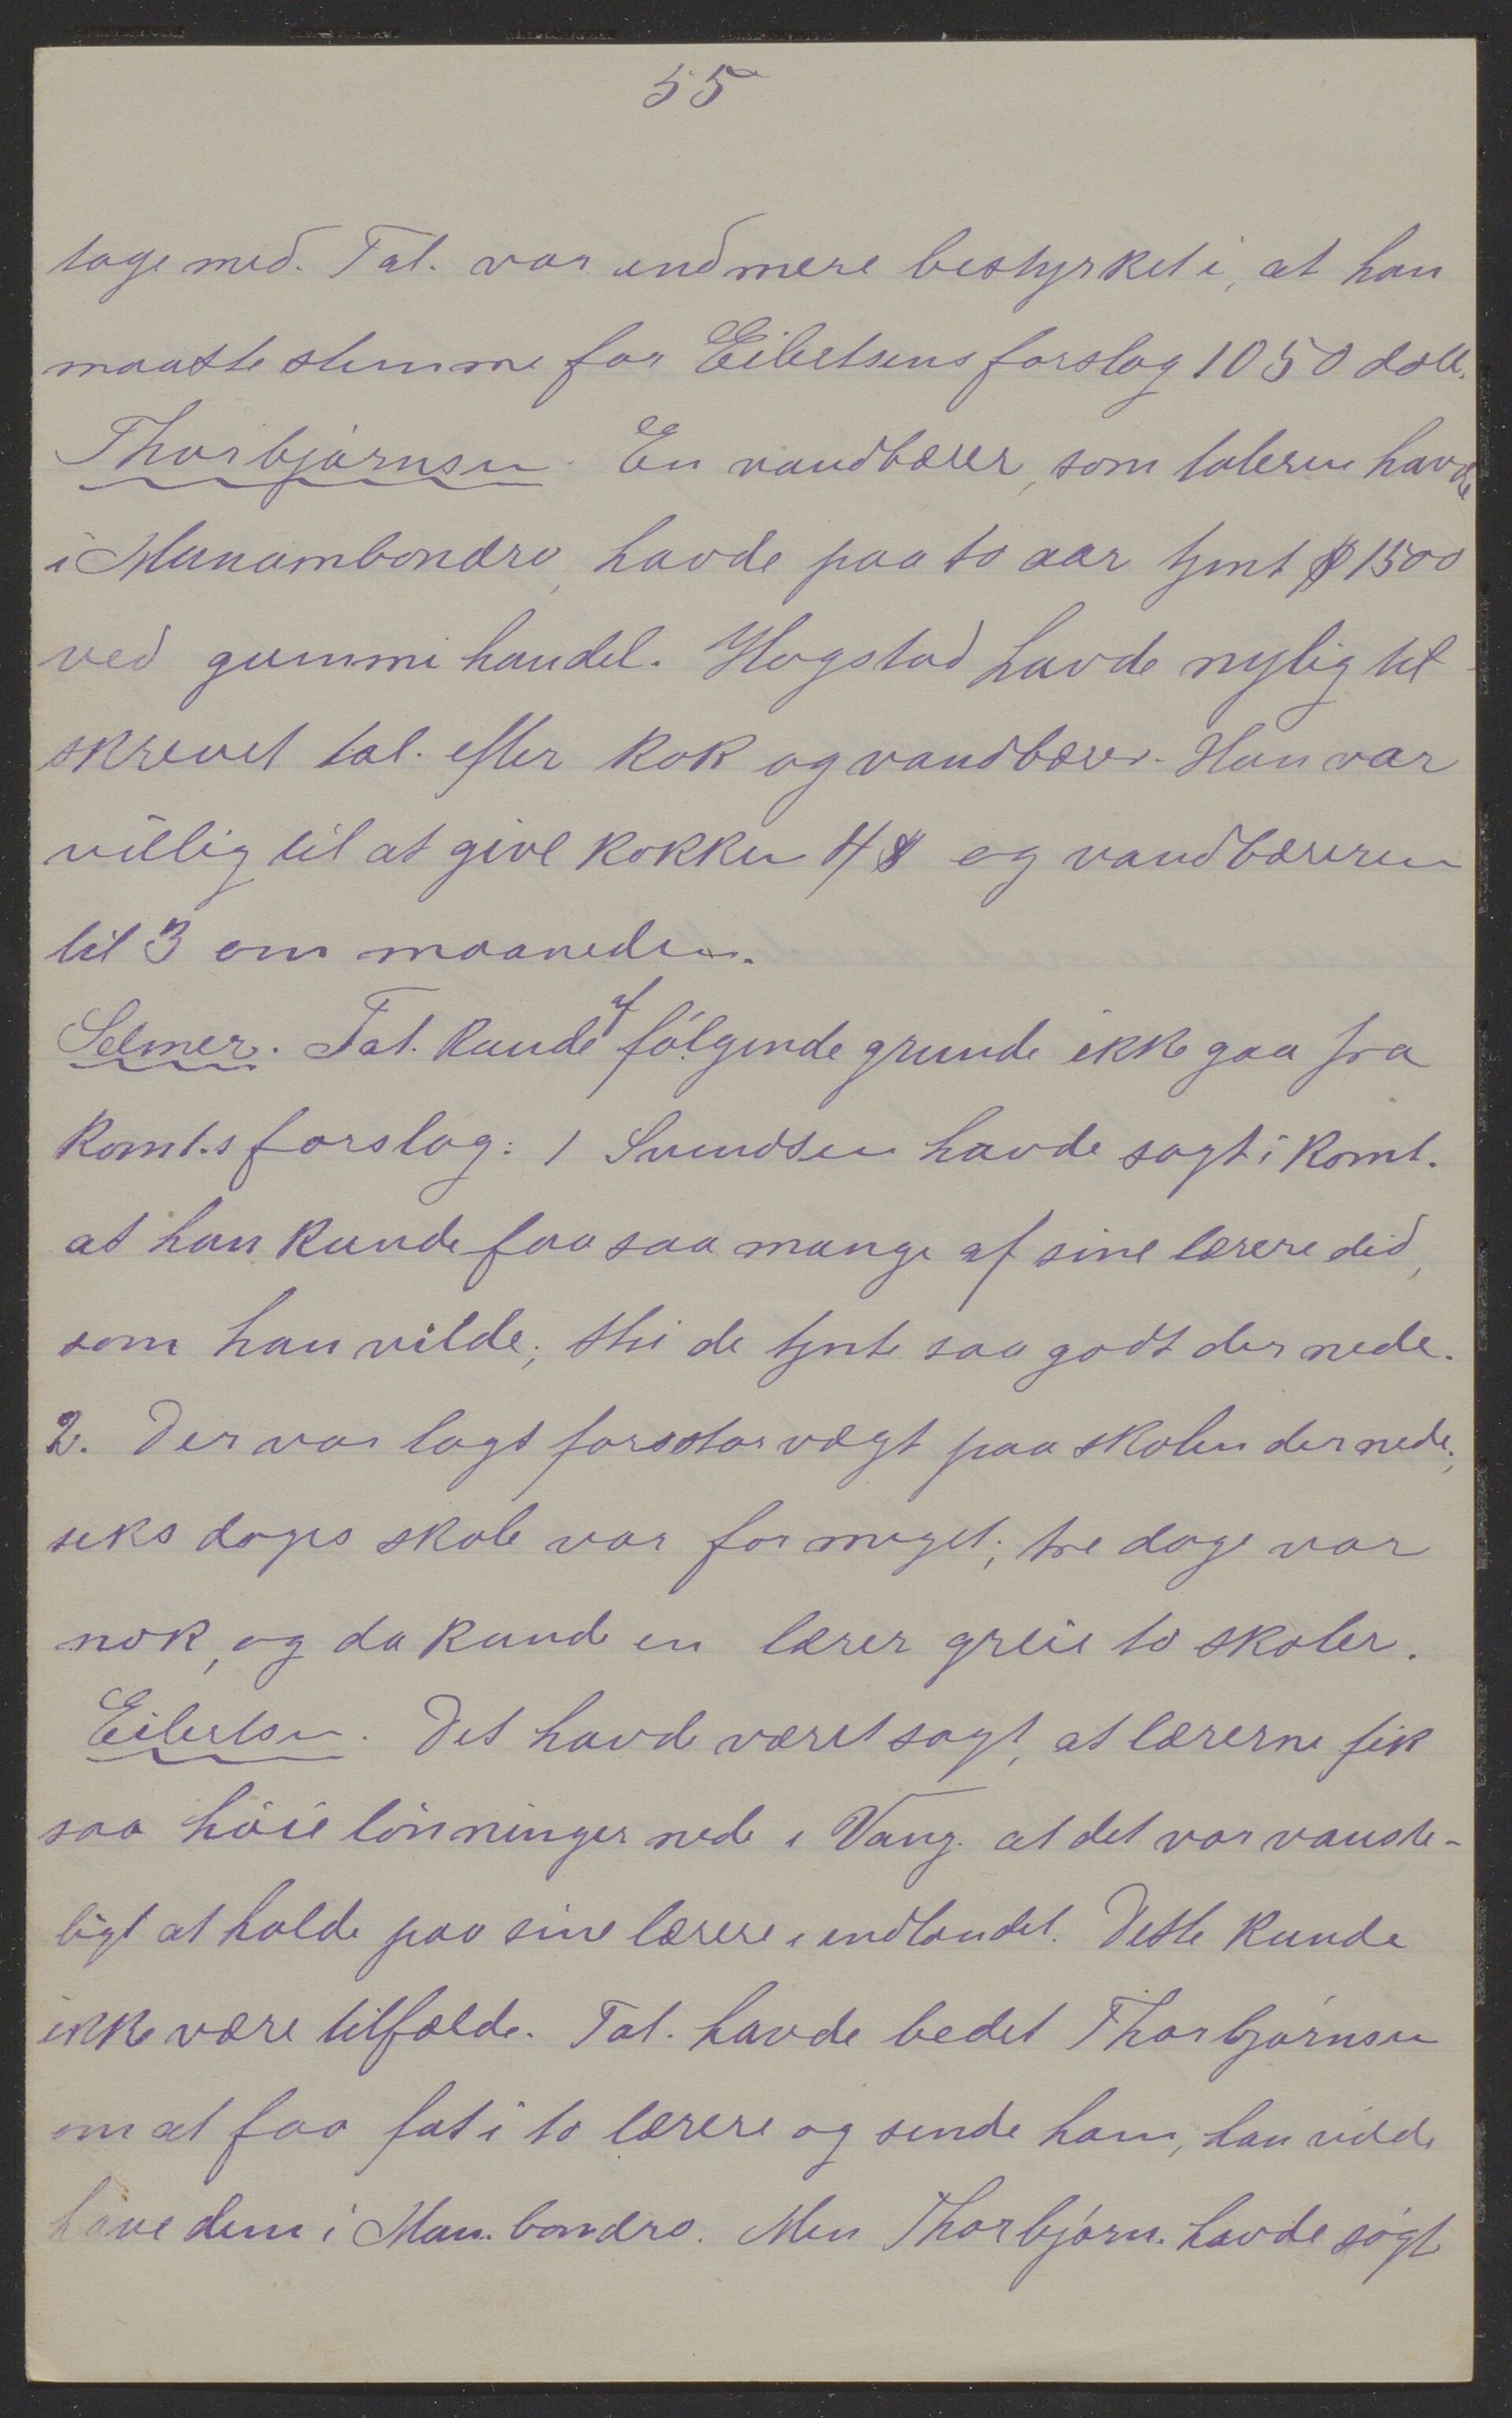 55
tage med. Tal. var end mere bestyrket i, at han
maatte stemme for Eilertsens forslag 1050 doll.
Thorbjørnsen. En vandbærer, som taleren havde
i Manambondro, havde paa to aar tjent $ 1500
ved gummihandel. Hogstad havde nylig til-
skrevet tal. efter kok og vandbærer. Han var
villig til at give kokken 4 $ og vandbæreren
til 3 om maaneden.
Selmer. Tal. kunde af følgende grunde ikke gaa fra
Komt.s forslag: 1 Svendsen havde sagt i Komt.
at han kunde faa saa mange af sine lærere did,
som han vilde; thi de tjente saa godt der nede.
2. Der var lagt for stor vægt paa skolen der nede;
seks dages skole var for meget; tre dage var
nok, og da kunde en lærer greie to skoler.
Eilertsen. Det havde været sagt, at lærerne fik
saa høie lønninger nede i Vang. at det var vanske-
ligt at holde paa sine lærere i indlandet. Dette kunde
ikke være tilfælde. Tal. havde bedet Thorbjørnsen
om at faa fat i to lærere og sende ham, han vilde
have dem i Man.bondro. Men Thorbjørn. havde søgt